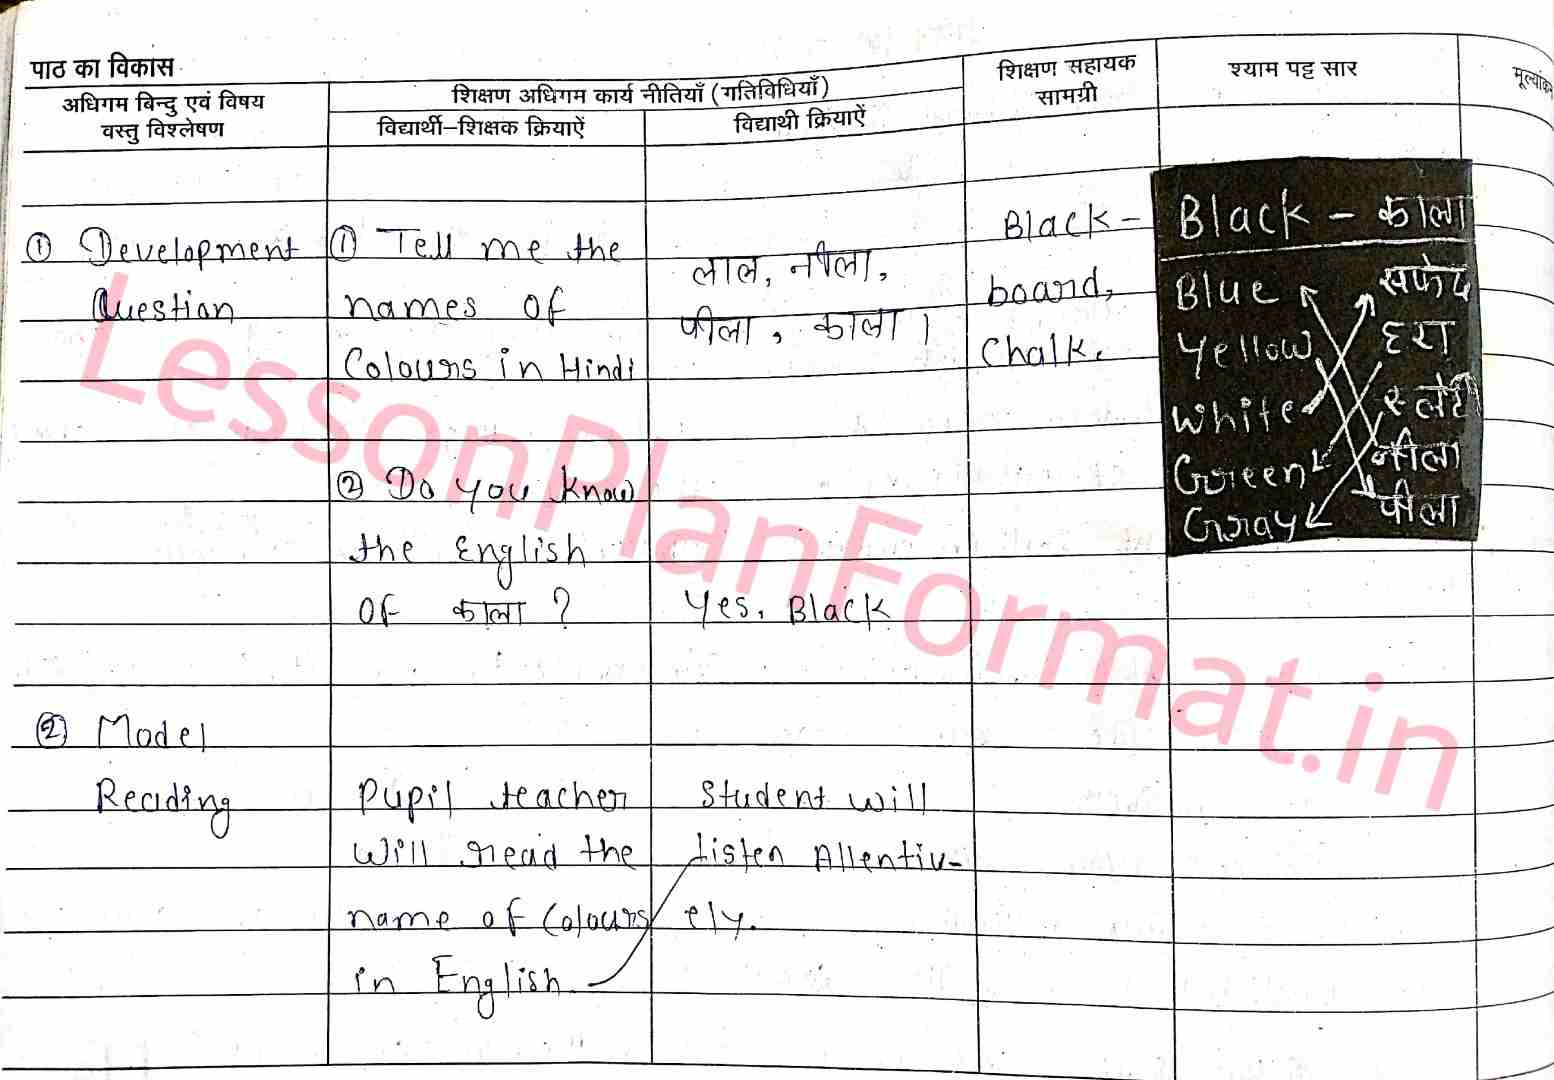 पाठ का विकास
अधिगम बिन्दु एवं विषय
वस्तु विश्लेषण
शिक्षण अधिगम कार्य नीतियाँ (गतिविधियाँ)
विद्यार्थी–शिक्षक क्रियाऐं
विद्यार्थी क्रियाऐं
शिक्षण सहायक
सामग्री
श्याम पट्ट सार
① Development
Question
① Tell me the
names of
Colours in Hindi
लाल, नीला,
पीला, काला।
② Do you know
the English
of काला ?
Yes, Black
Black –
board,
Chalk.
Black – काला
Blue सफेद
Yellow हरा
White स्लेटी
Green नीला
Gray पीला
② Model
Reading
Pupil teacher
will read the
name of Colours
in English
Student will
listen Attentiv–
ely.
LessonPlanFormat.in